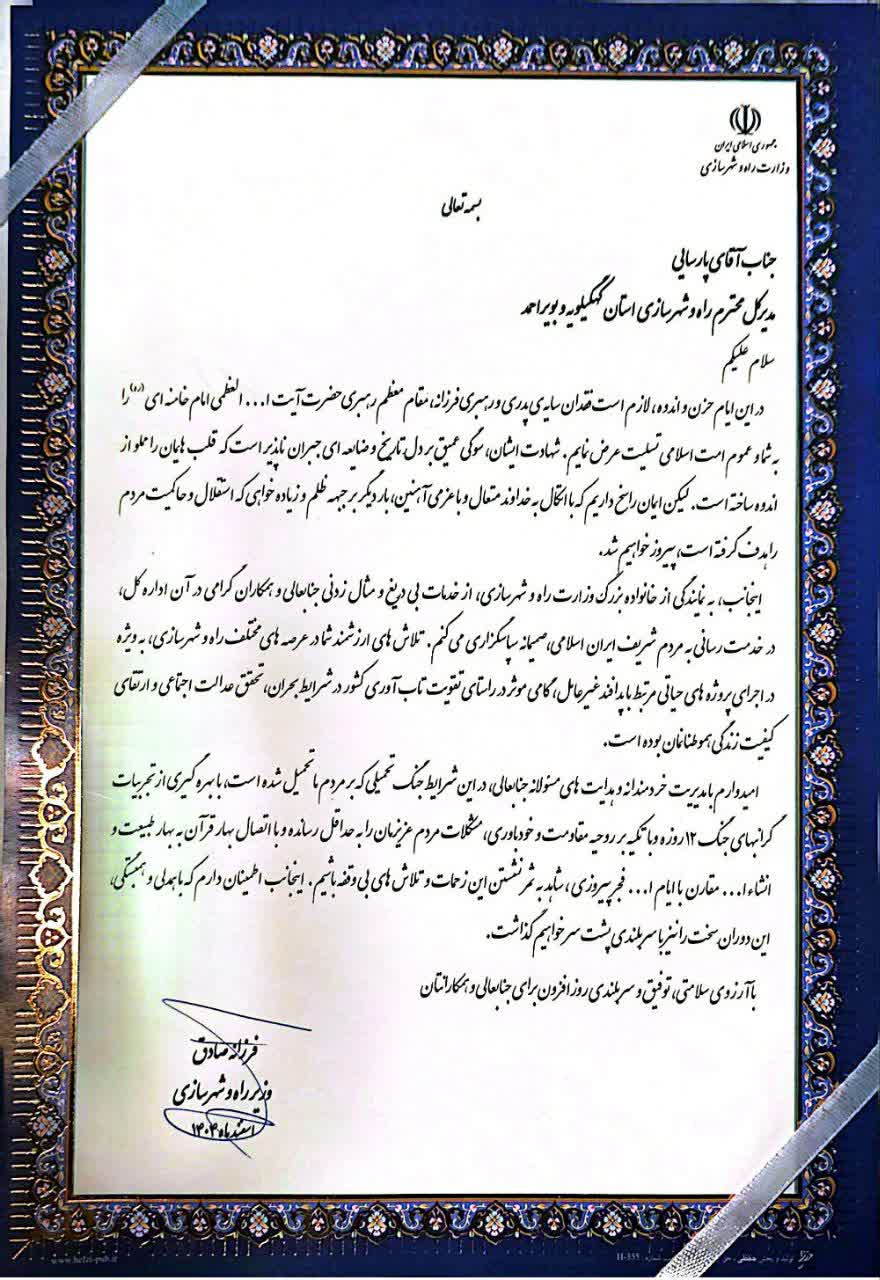 جمهوری اسلامی ایران
وزارت راه و شهرسازی
بسمه تعالی
جناب آقای پارسایی
مدیرکل محترم راه و شهرسازی استان کهگیلویه و بویراحمد
سلام علیکم
در این ایام حزن و اندوه، لازم است فقدان سایه‌ی پدری و رهبری فرزانه، مقام معظم رهبری حضرت آیت ا... العظمی امام خامنه ای (ره) را
به شما و عموم امت اسلامی تسلیت عرض نمایم. شهادت ایشان، سوگی عمیق بر دل تاریخ و ضایعه ای جبران ناپذیر است که قلب هایمان را مملو از
اندوه ساخته است. لیکن ایمان راسخ داریم که با اتکال به خداوند متعال و با عزمی آهنین، بار دیگر بر جبهه ظلم و زیاده خواهی که استقلال و حاکمیت مردم
را هدف گرفته است، پیروز خواهیم شد.
اینجانب، به نمایندگی از خانواده بزرگ وزارت راه و شهرسازی، از خدمات بی دریغ و مثال زدنی جنابعالی و همکاران گرامی در آن اداره کل،
در خدمت رسانی به مردم شریف ایران اسلامی، صمیمانه سپاسگزاری می کنم. تلاش های ارزشمند شما در عرصه های مختلف راه و شهرسازی، به ویژه
در اجرای پروژه های حیاتی مرتبط با پدافند غیرعامل، گامی موثر در راستای تقویت تاب آوری کشور در شرایط بحران، تحقق عدالت اجتماعی و ارتقای
کیفیت زندگی هموطنانمان بوده است.
امیدوارم با مدیریت خردمندانه و هدایت های مسئولانه جنابعالی، در این شرایط جنگ تحمیلی که بر مردم ما تحمیل شده است، با بهره گیری از تجربیات
گرانبهای جنگ ۱۲ روزه و با تکیه بر روحیه مقاومت و خودباوری، مشکلات مردم عزیزمان را به حداقل رسانده و با اتصال بهار قرآن به بهار طبیعت و
انشاء ا... مقارن با ایام ا... فجر پیروزی، شاهد به ثمر نشستن این زحمات و تلاش های بی وقفه باشیم. اینجانب اطمینان دارم که با همدلی و همبستگی،
این دوران سخت را نیز با سربلندی پشت سر خواهیم گذاشت.
با آرزوی سلامتی، توفیق و سربلندی روز افزون برای جنابعالی و همکارانتان
فرزانه صادق
وزیر راه و شهرسازی
اسفند ماه ۱۴۰۴
www.hefzi-pub.ir
H-355